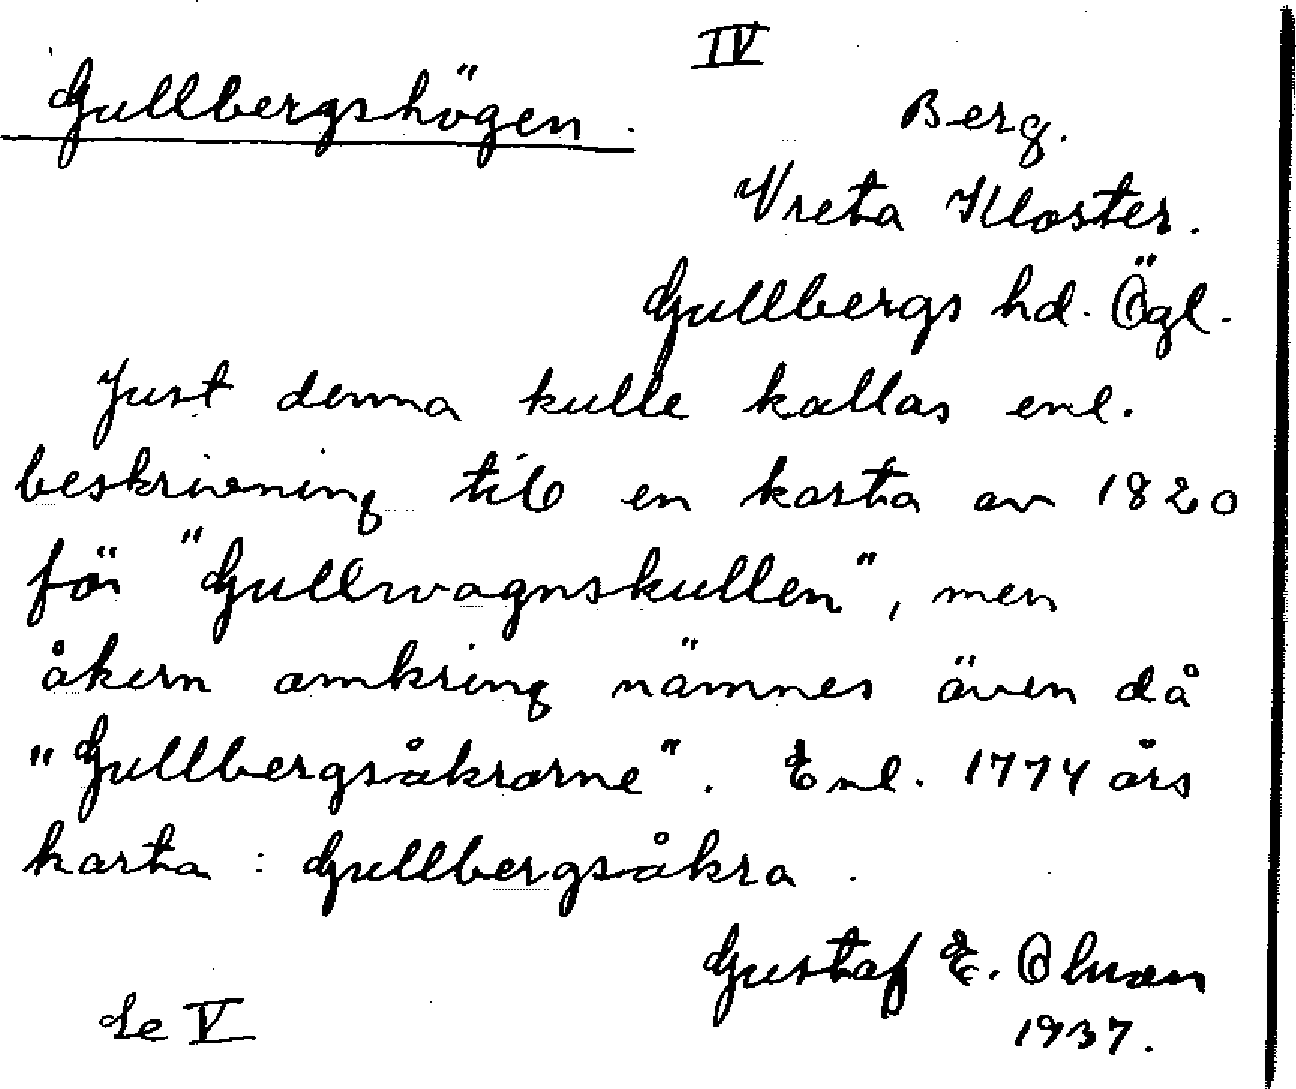 IV
Gullbergshögen.
Berg.
Vreta Kloster.
Gullbergs hd. Ögl.
Just denna kulle kallas enl.
beskrivning till en karta av 1820
för "Gullvagnskullen", men
åkern omkring nämnes även då
"Gullbergsåkrarne". Enl. 1774 års
karta: Gullbergsåkra.
Gustaf E. Olsson
1937.
Se V